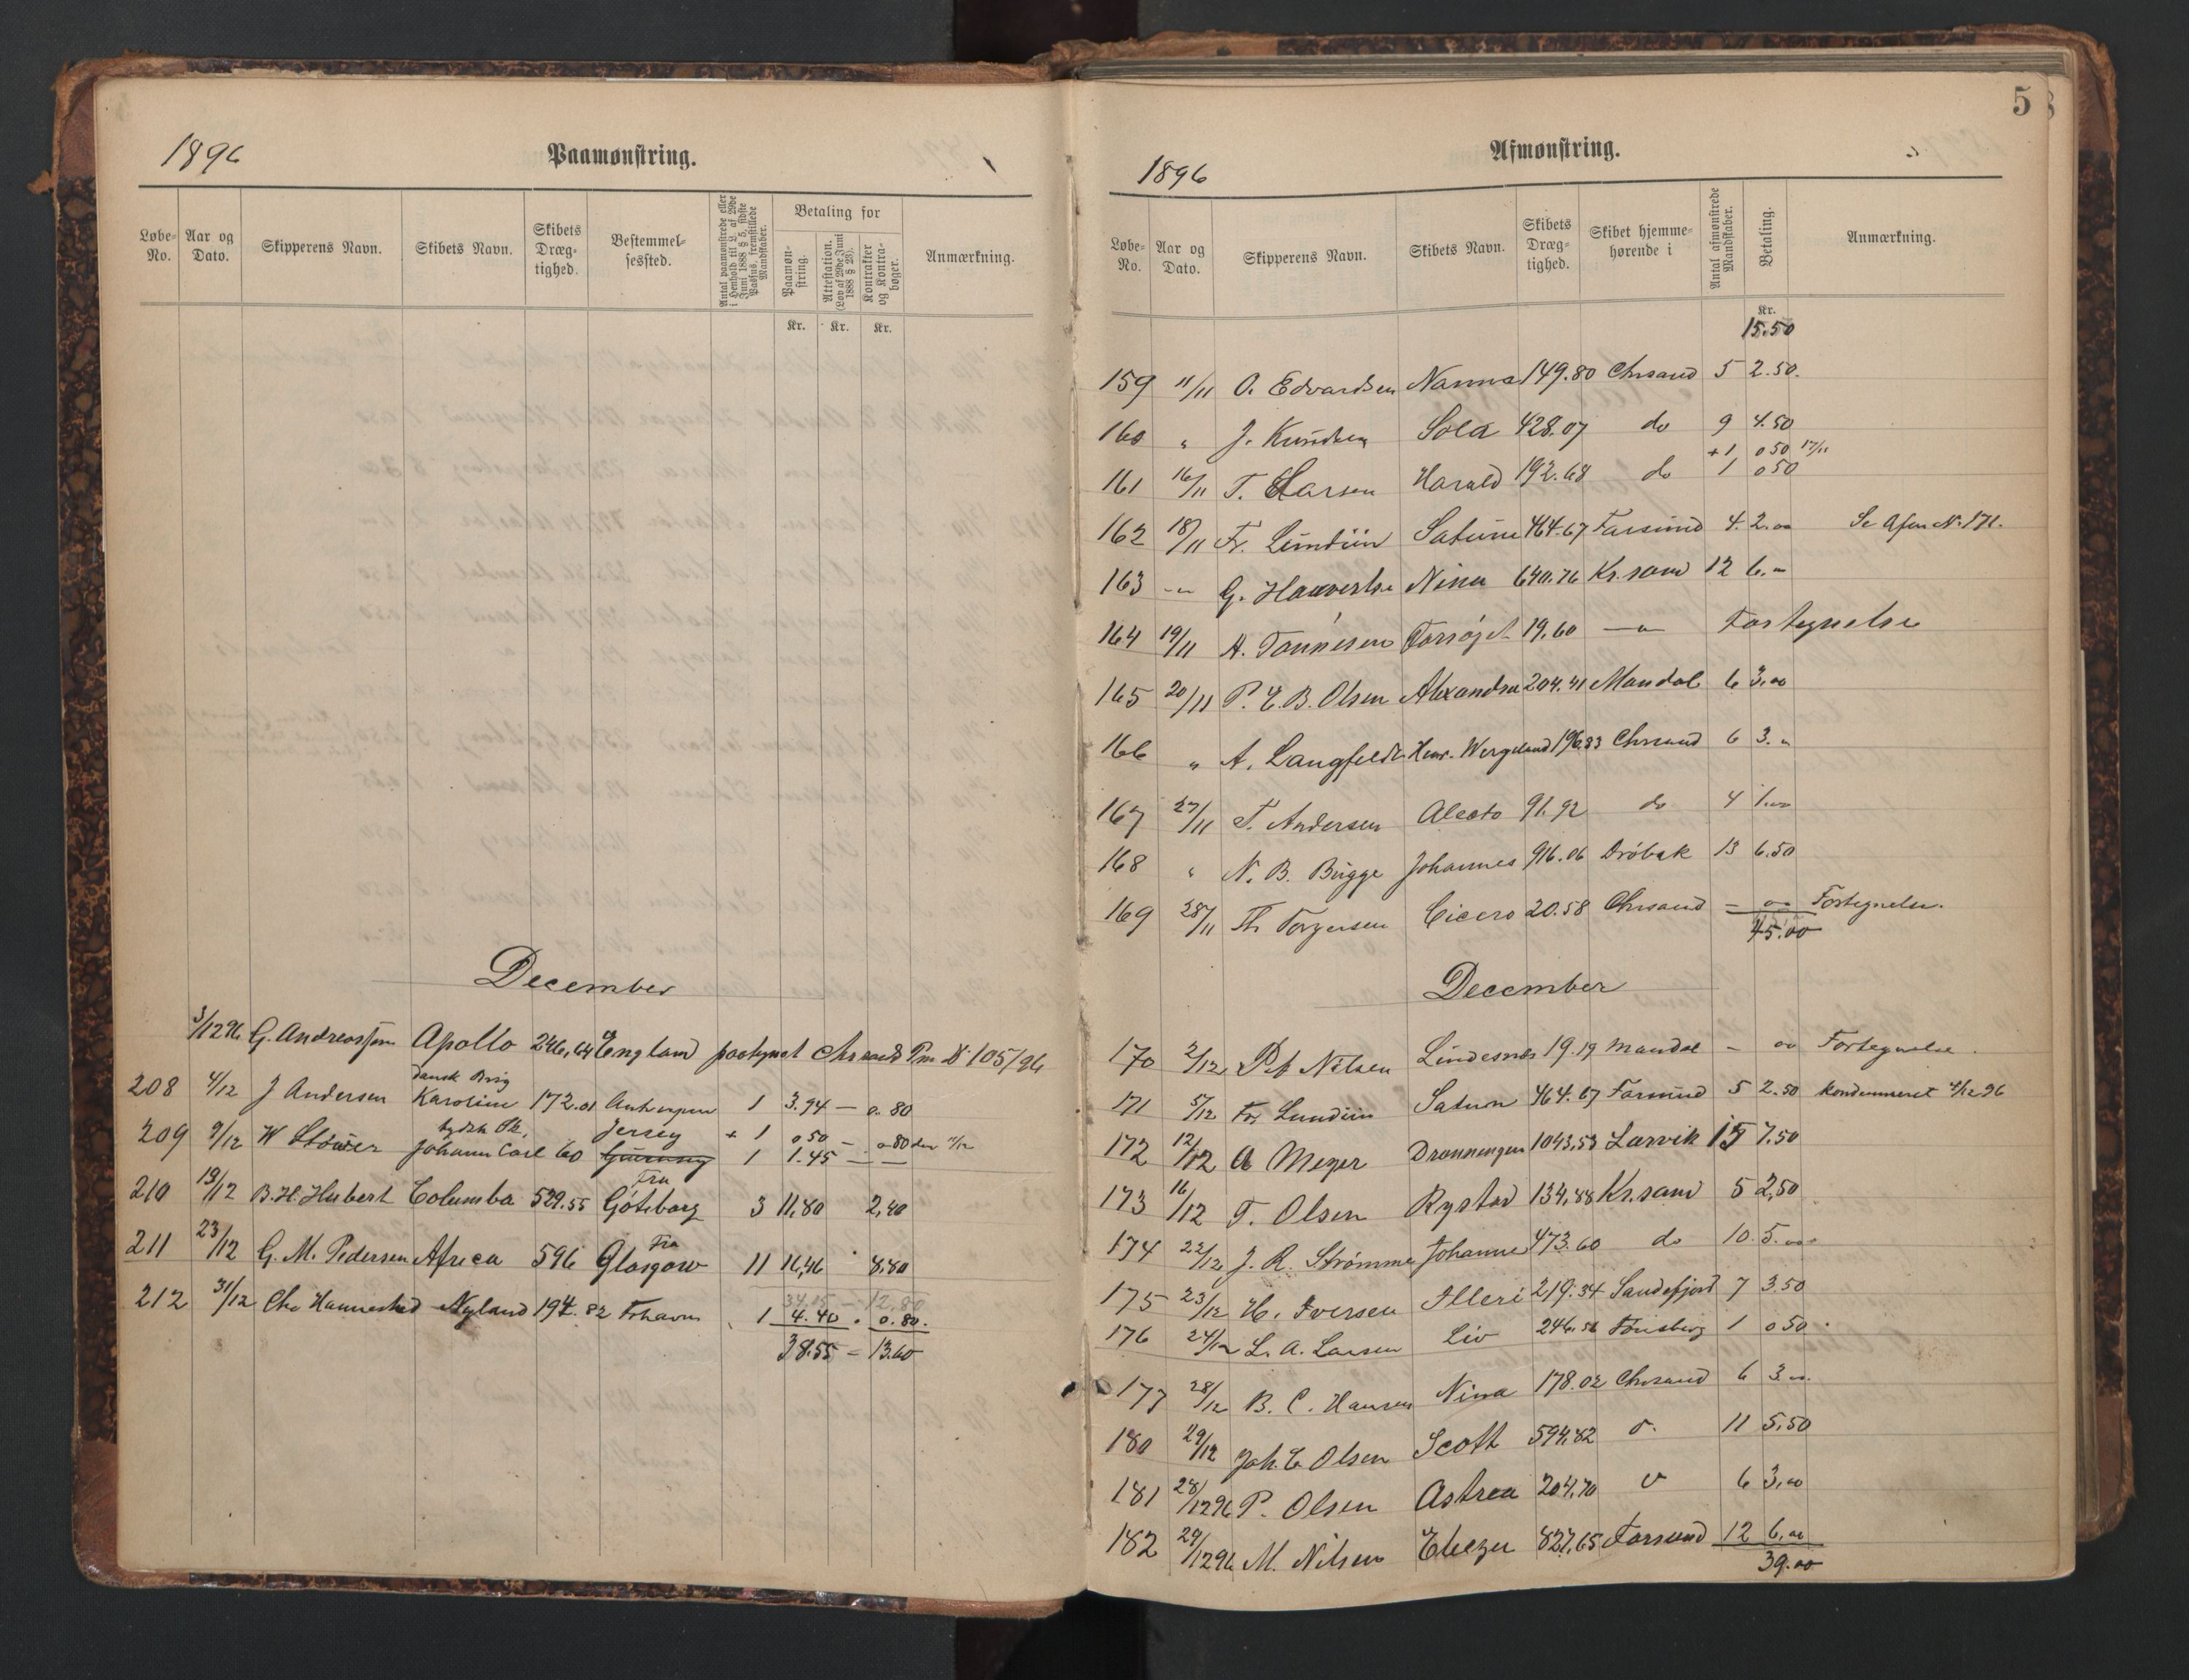 1896 Paamønstring.
Løbe-No. Aar og Dato. Skipperens Navn. Skibets Navn. Skibets Dræg-tighed. Bestemmel-sessted. Antal paamønstrede eller i Henhold til L. af 29de Juni 1888 § 5, sidste Passus, fremstillede Mandskaber. Betaling for Paamøn-string. Attestation. (Lov af 29de Juni 1888 § 23). Kontrakter og Kontra-bøger. Anmærkning.
Kr. Kr. Kr.
December
3/12 96 G. Andreassen Apollo 246,64 England paategnet Chrsand Pm N 105/96
208 4/12 J Andersen dansk Brig Karoline 172.01 Antwerpen 1 3.94 — 0.80
Jersey + 1 0 50 — 0 80 den
209 9/12 W Stower tydsk Sk. Johann Carl 60 Guernsey 1 1.45 — —
210 19/12 B. H. Hubert Columba 529.55 Fra Göteborg 3 11,80 2,40
211 23/12 G. M. Pedersen Africa 596 Fra Glasgow 11 16,46 8.80
34,15 — 12,80
212 31/12 Chr Hannestad Nyland 194.82 Frhavn 1 4.40 . 0.80.
38.55 — 13.60
5
1896 Afmønstring.
Løbe-No. Aar og Dato. Skipperens Navn. Skibets Navn. Skibets Dræg-tighed. Skibet hjemme-hørende i Antal afmønstrede Mandskaber. Betaling. Anmærkning.
Kr.
15.50
159 11/11 O. Edvardsen Nanna 149.80 Chrsand 5 2.50.
160 " J. Knudsen Sola 428.07 do 9 4.50
+ 1 0 50 17/11
161 16/11 T. Larsen Harald 192.68 do 1 0 50
162 18/11 Fr. Lundiin Saturn 464.67 Farsund 4. 2.00 Se Afm N. 171.
163 — " — G. Haaverstse Nina 640.76 Kr.sand 12 6.00
164 19/11 A. Tønnesen Forsøget 19.60 — " — Fortegnelse
165 20/11 P. E. B. Olsen Alexandra 204.41 Mandal 6 3,00
166 " A. Langfeldt Henr. Wergeland 196.83 Chrsand 6 3. "
167 27/11 T. Andersen Alecto 91.92 do 4 1.00
168 " N. B. Bugge Johannes 916.06 Drøbak 13 6.50
169 28/11 Th Torgersen Cicero 20.58 Chrsand — 00 Fortegnelse.
45.00
December
170 2/12 Nilsen Lindesnæs 19.19 Mandal — 00 Fortegnelse.
171 5/12 Fr. Lundiin Saturn 464.67 Farsund 5 2.50 kondemneret 4/12 96
172 12/12 A Meyer Dronningen 1043,53 Larvik 15 7.50
173 16/12 T. Olsen Rystad 134,88 Kr.sand 5 2,50
174 22/12 J. R. Strømme Johanne 473.60 do 10. 5.00
175 23/12 H. Iversen Illeri 219.34 Sandefjord 7 3.50
176 24/12 L. A. Larsen Liv 246.56 Tønsberg 1 0 50.
177 28/12 B. C. Hansen Nina 178.02 Chrsand 6 3 00.
180 29/12 Joh. C Olsen Scott 594,82 do. 11 5,50
181 28/12 96 P. Olsen Astrea 204,70 do 6 3,00
182 29/12 96 M. Nilsen Ebezer 827,65 Farsund 12 6,00
39.00